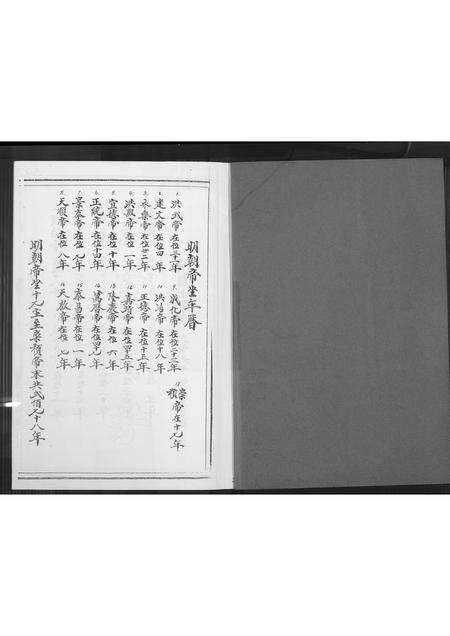 明朝帝坐年曆
1. 洪武帝 在位三十一年
2. 建文帝 在位四年
3. 永樂帝 在位廿二年
4. 洪熙帝 在位一年
5. 宣德帝 在位十年
6. 正統帝 在位十四年
7. 景泰帝 在位九年
8. 天順帝 在位八年
9. 成化帝 在位二十二年
10. 洪治帝 在位十八年
11. 正德帝 在位十五年
12. 嘉靖帝 在位四五年
13. 隆慶帝 在位六年
14. 萬曆帝 在位四九年
15. 泰昌帝 在位一年
16. 天啟帝 在位七年
17. 崇禎帝在十九年
明朝帝坐十九宝至崇禎帝末共弍百九十八年